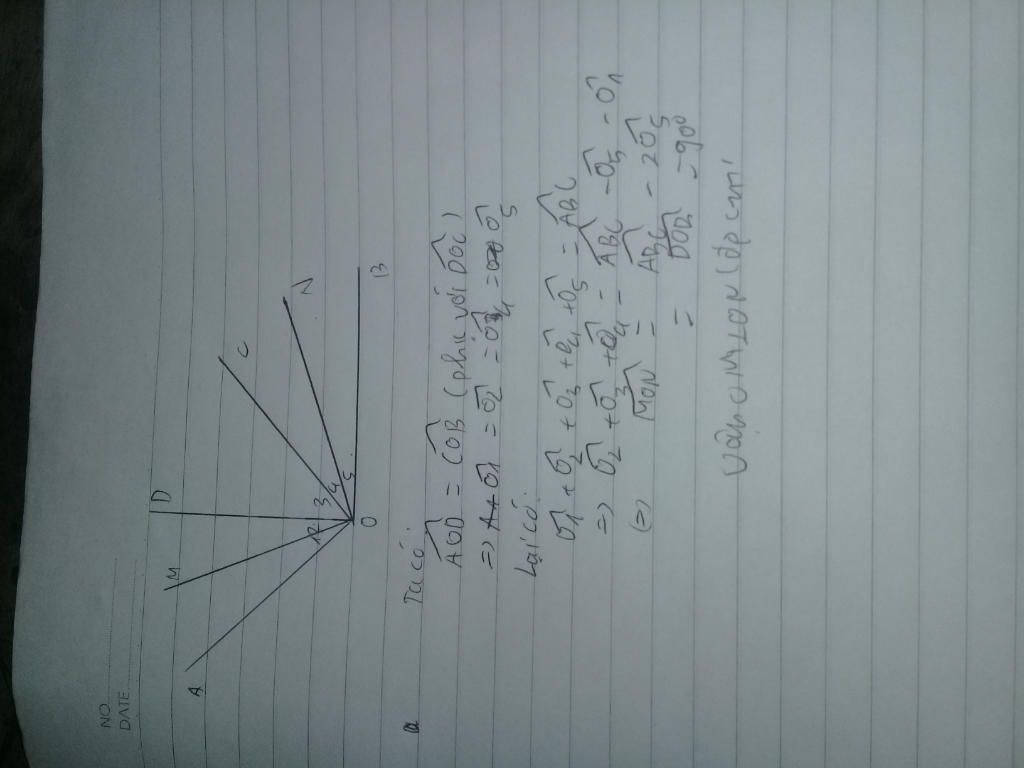 NO.
DATE
A
M
D
C
N
B
O
1 2 3 4 5
a Ta có
AOD = COB (phụ với DOC)
=> Ô1 = Ô2 = Ô4 = Ô5
Lại có:
Ô1 + Ô2 + Ô3 + Ô4 + Ô5 = ABC
=> Ô2 + Ô3 + Ô4 = ABC - Ô5 - Ô1
(=) MON = ABC - 2Ô5
= DOB = 90⁰
Vậy OM⊥ON (đpcm)